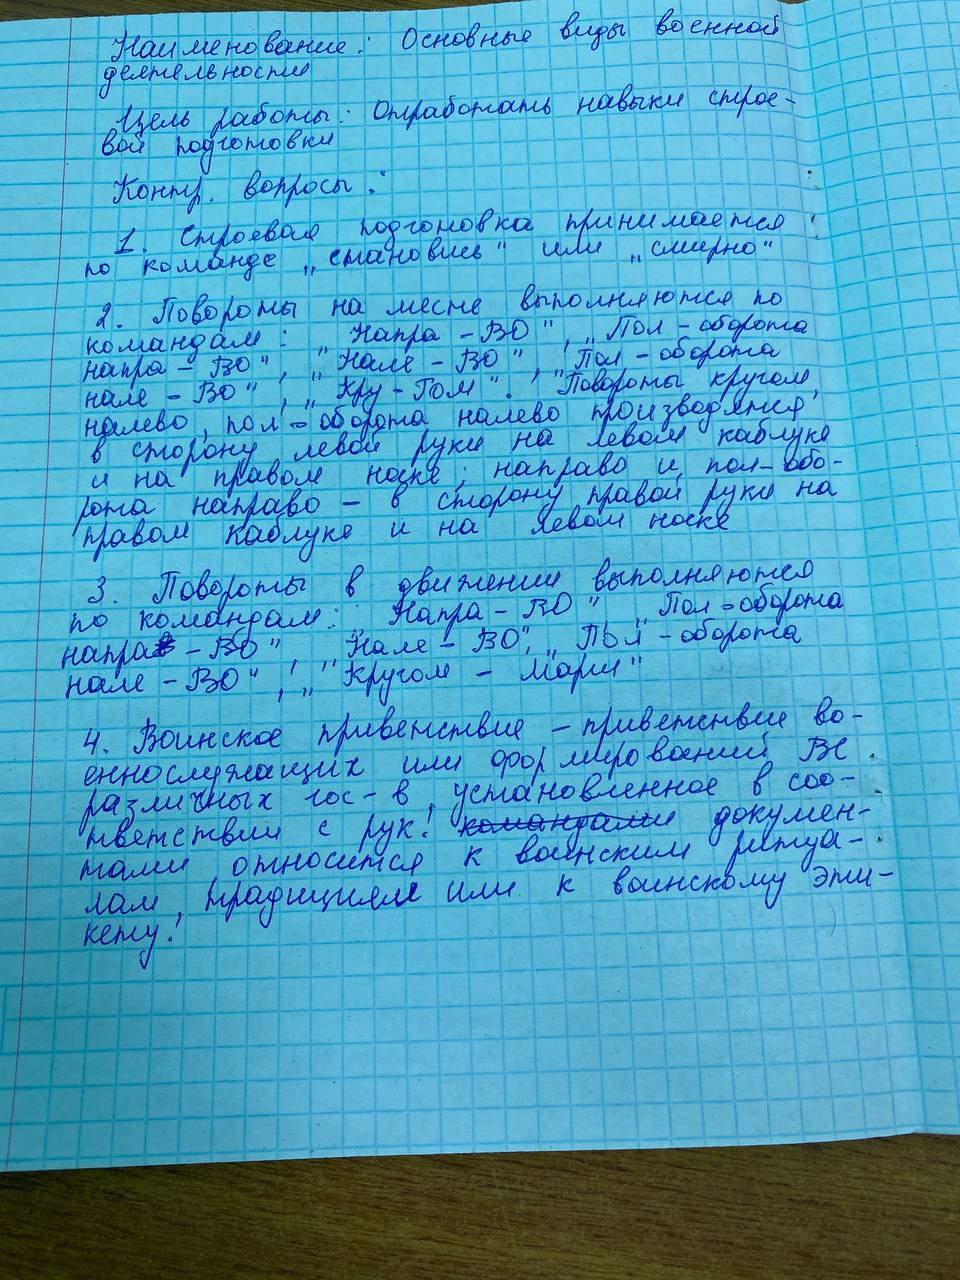 Наименование: Основные виды военной
деятельности
Цель работы: Отработать навыки строе-
вой подготовки
Контр. вопросы:
1. Строевая подготовка принимается
по команде „становись" или „смирно"
2. Повороты на месте выполняются по
командам: „Напра - ВО", „Пол - оборота
напра - ВО", „Нале - ВО", „Пол - оборота
нале - ВО", „Кру - Гом". Повороты кругом,
налево, пол - оборота налево производятся
в сторону левой руки на левом каблуке
и на правом носке; направо и пол - обо-
рота направо - в сторону правой руки на
правом каблуке и на левом носке
3. Повороты в движении выполняются
по командам: „Напра - ВО", „Пол - оборота
напра - ВО", „Нале - ВО", „Пол - оборота
нале - ВО", „Кругом - Марш"
4. Воинское приветствие - приветствие во-
еннослужащих или формирований ВС
различных гос-в, установленное в соо-
тветствии с рук! командами докумен-
тами относится к воинским ритуа-
лам, традициям или к воинскому эти-
кету!